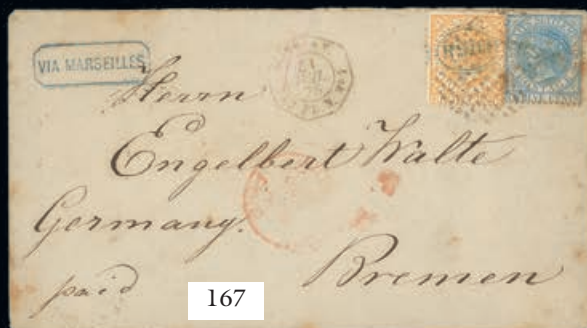 VIA MARSEILLES
Herrn
Engelbert Walte
Germany.
Bremen
paid
167